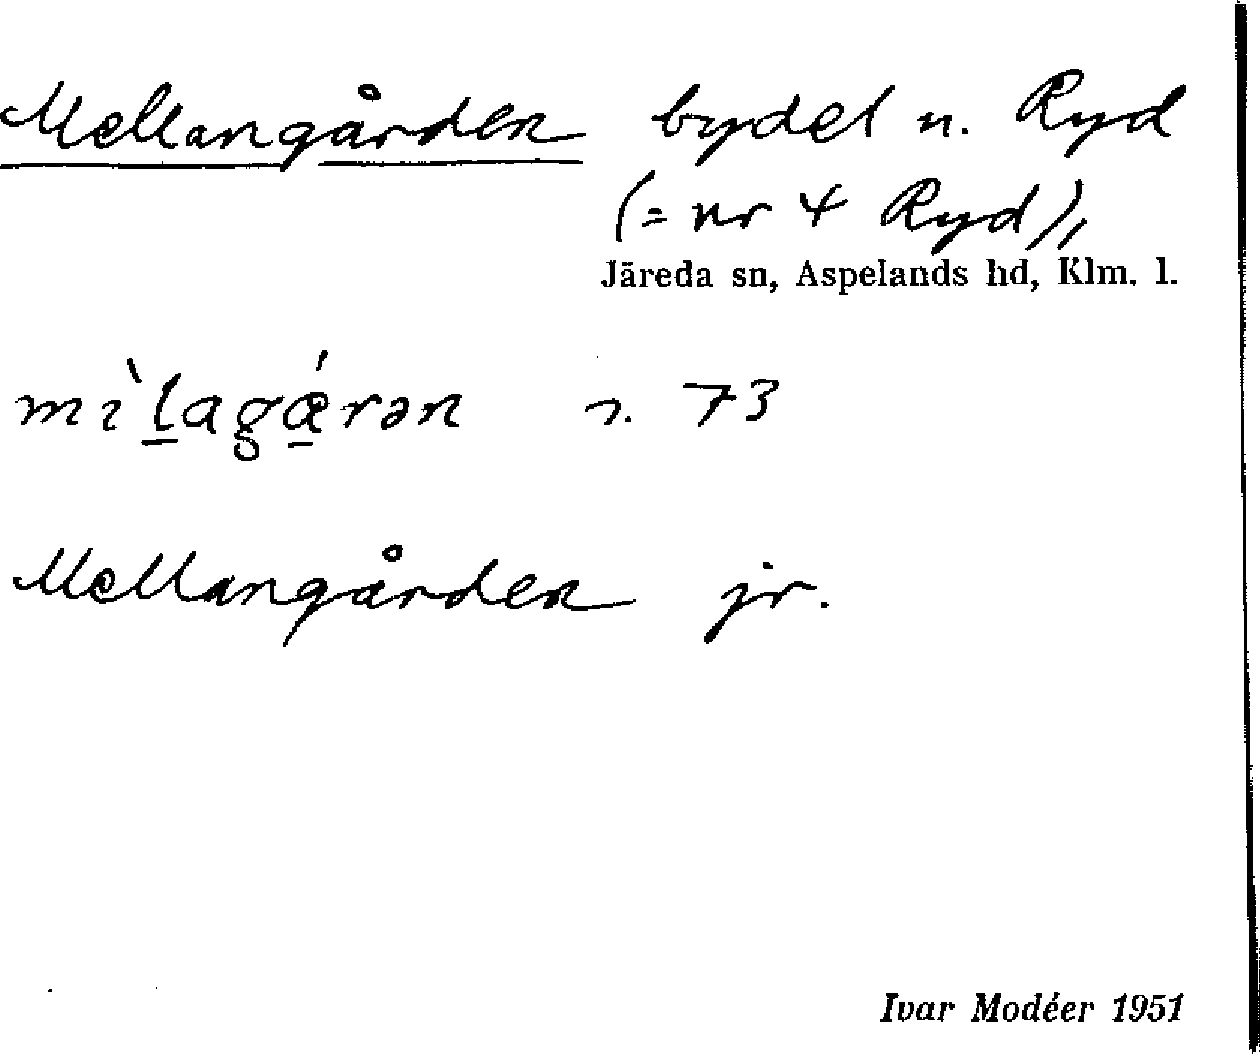 Mellangården bydel u. Ryd
(= nr 4 Ryd),,
Järeda sn, Aspelands hd, Klm. l.
mìlagǽrən s. 73
Mellangården jr.
Ivar Modéer 1951